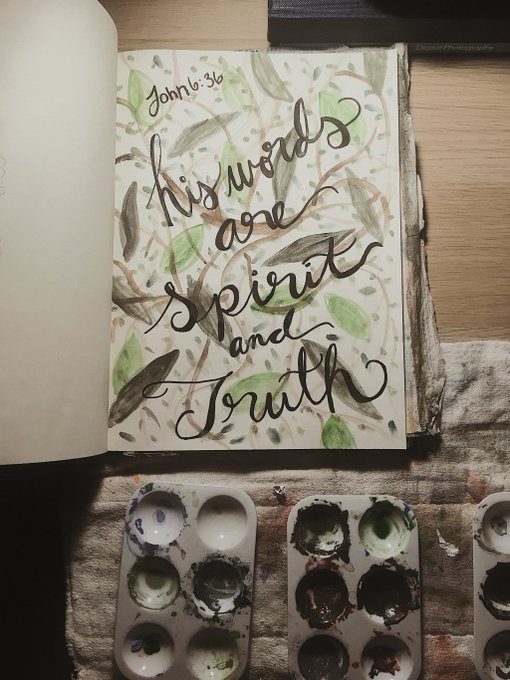 John 6:36
his words
are
spirit
and
Truth
Digital Photography